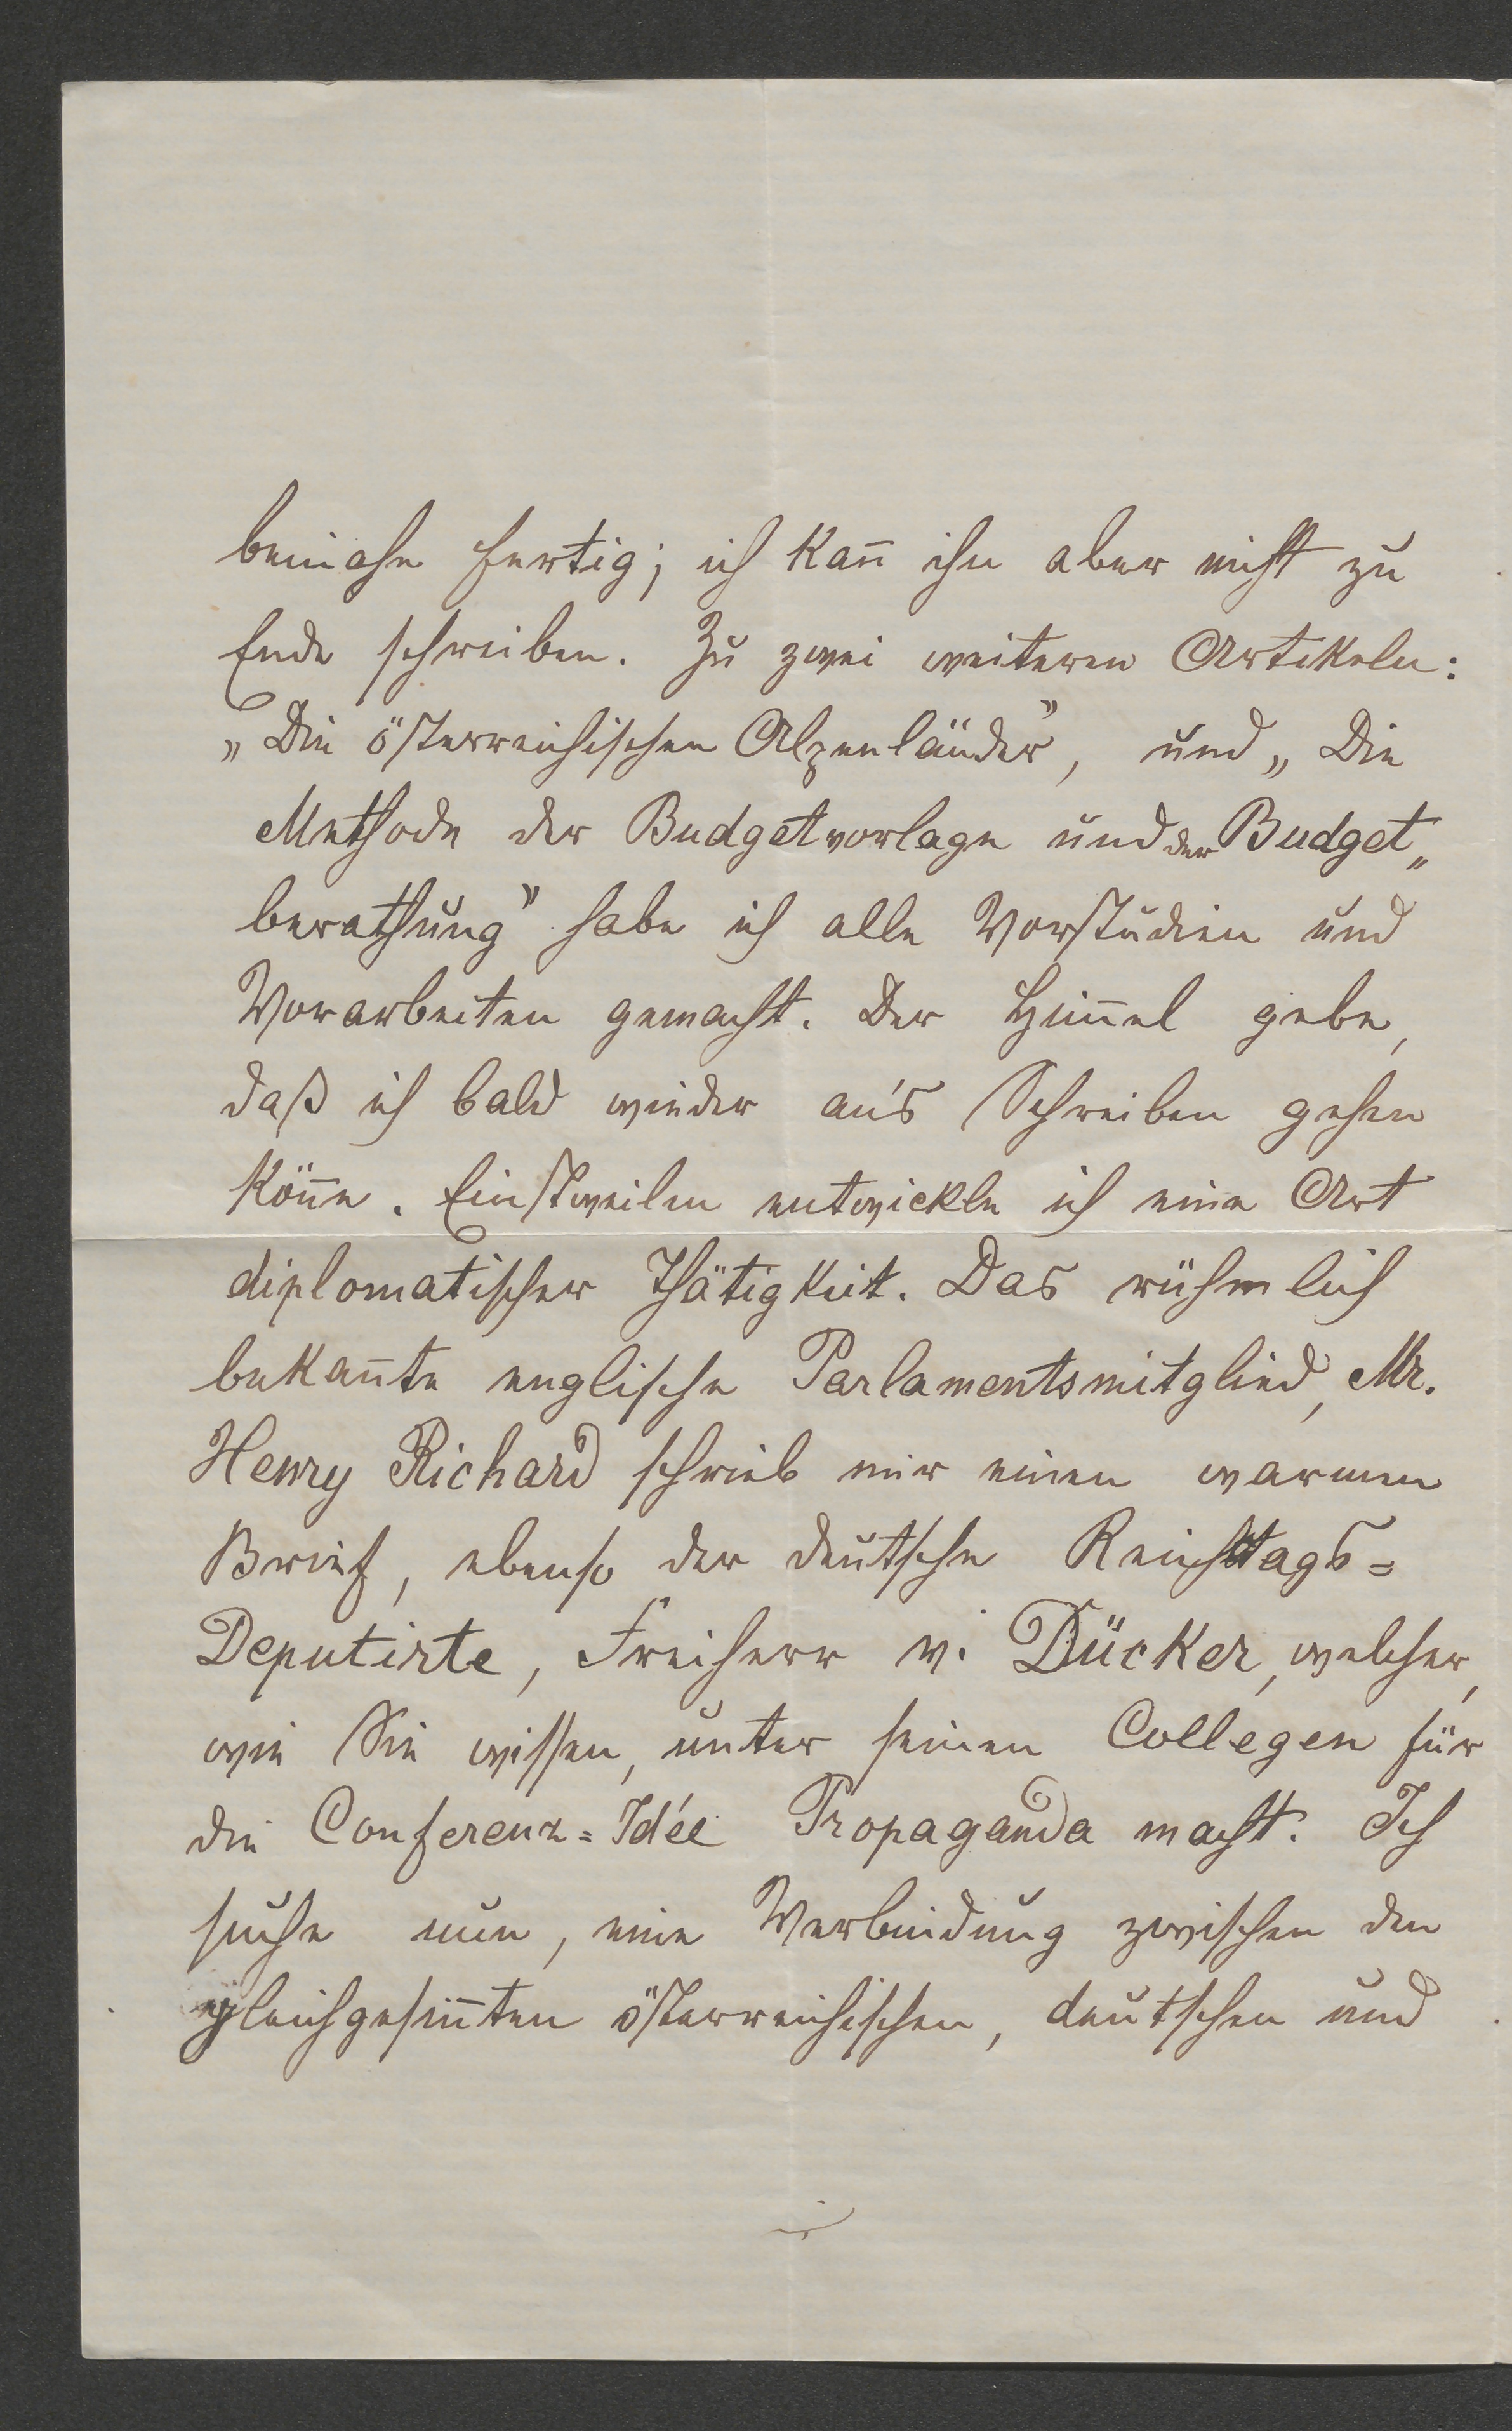 beinahe fertig; ich kan̄ ihn aber nicht zu
Ende schreiben. Zu zwei weiteren Artikeln:
„Die österreichischen Alpenländer”, und „Die
Methode der Budgetvorlage und der Budget„
berathung” habe ich alle Vorstudien und
Vorarbeiten gemacht. Der Him̄el gebe,
daß ich bald wieder an's Schreiben gehen
kön̄e. Einstweilen entwickle ich eine Art
diplomatischer Thätigkeit. Das rühmlich
bekan̄te englische Parlamentsmitglied, Mr.
Henry Richard schrieb mir einen warmen
Brief, ebenso der deutsche Reichstags=
Deputirte, Freiherr v. Dücker, welcher,
wie Sie wissen, unter seinen Collegen für
die Conferenz=Idée Propaganda macht. Ich
suche nun, eine Verbindung zwischen den
gleichgesin̄ten österreichischen, deutschen und